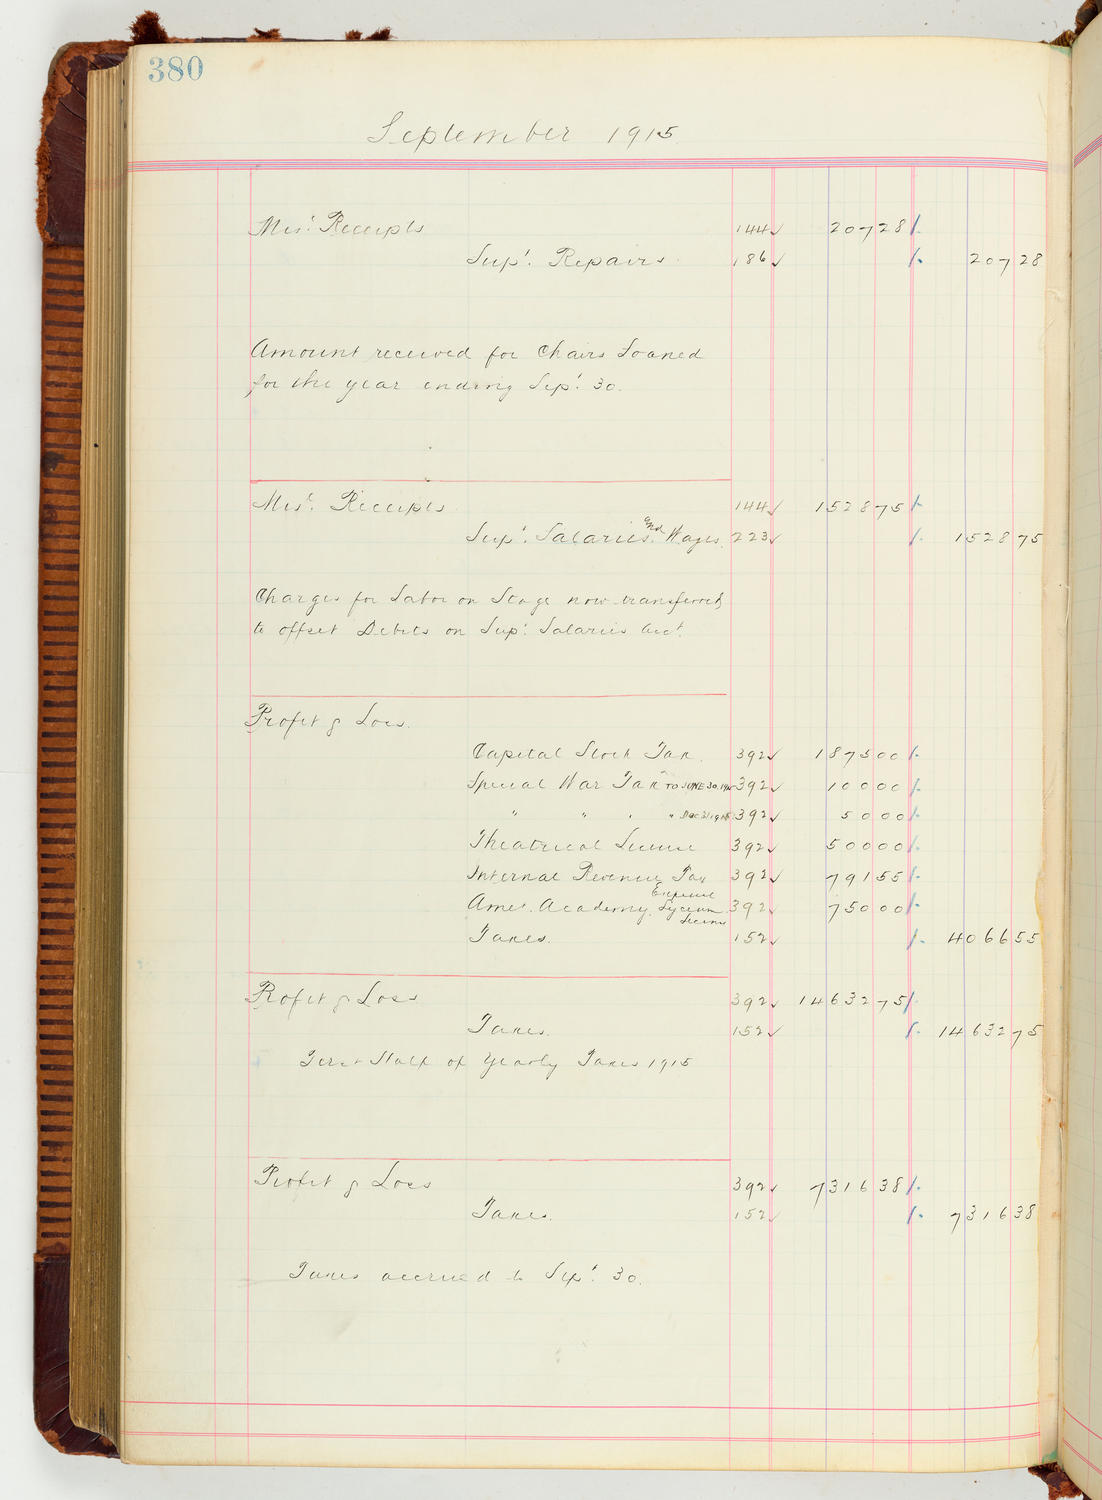 380
September 1915
Mis'. Receipts 144 ✓ 207 28
Sup'. Repairs 186 ✓ 207 28
Amount received for Chairs Loaned
for the year ending Sep'. 30.
Mis'. Receipts 144 ✓ 1528 75
Sup'. Salaries and Wages. 223 ✓ 1528 75
Charges for Labor on Stage now transferred
to offset Debits on Sup'. Salaries Acct.
Profit & Loss.
Capital Stock Tax. 392 ✓ 1875 00
Special War Tax TO JUNE 30, 1915 392 ✓ 100 00
" " " " Dec 31 1915 392 ✓ 50 00
Theatrical License 392 ✓ 500 00
Internal Revenue Tax 392 ✓ 791 55
Amer. Academy Lyceum Expense License 392 ✓ 750 00
Taxes. 152 ✓ 4066 55
Profit & Loss 392 ✓ 14632 75
Taxes. 152 ✓ 14632 75
First Half of Yearly Taxes 1915
Profit & Loss 392 ✓ 7316 38
Taxes. 152 ✓ 7316 38
Taxes accrued to Sep'. 30.